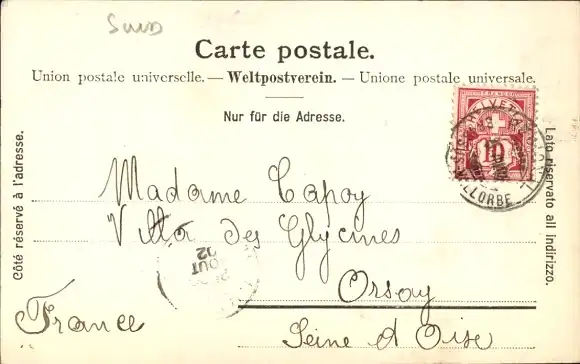 Carte postale.
Union postale universelle. — Weltpostverein. — Unione postale universale.
Nur für die Adresse.
Côté réservé à l'adresse.
Lato riservato all indirizzo.
FRANCO
HELVETIA
10
LLORBE
Madame Capoy
Villa des Glycines
AOUT
02
Orsay
France
Seine et Oise